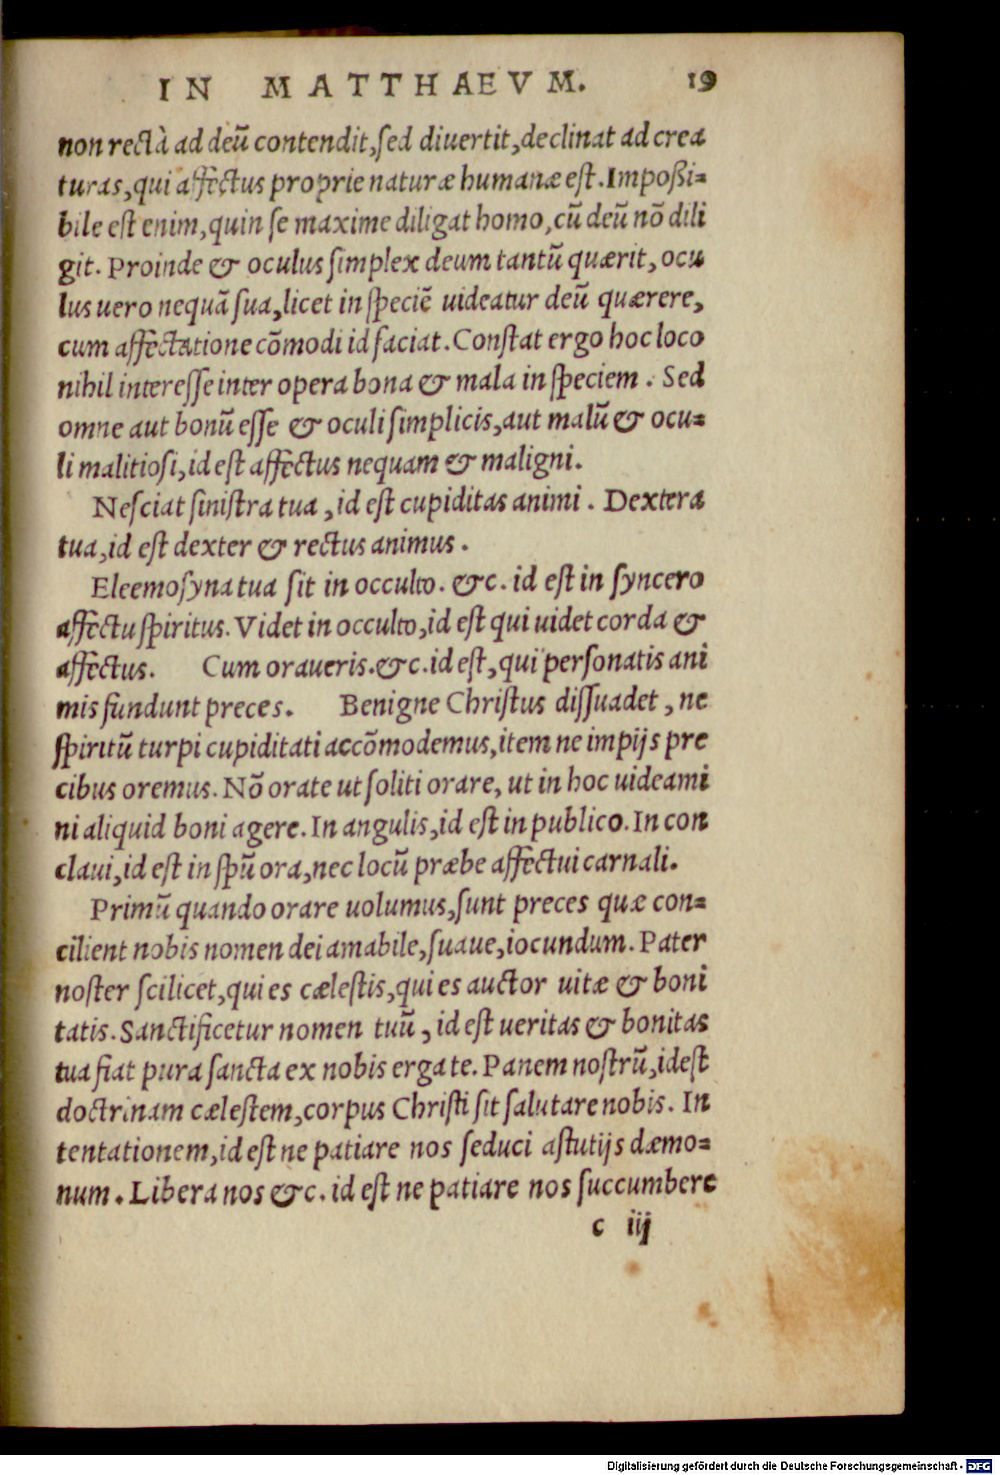 IN MATTHAEVM. 19
non rectà ad deū contendit,ſed diuertit,declinat ad crea
turas,qui affectus proprie naturæ humanæ eſt.Impoßi=
bile eſt enim,quin ſe maxime diligat homo,cū deū nō dili
git. Proinde & oculus ſimplex deum tantū quærit, ocu
lus uero nequā ſua,licet in ſpeciē uideatur deū quærere,
cum affectatione cōmodi id faciat.Conſtat ergo hoc loco
nihil intereſſe inter opera bona & mala in ſpeciem. Sed
omne aut bonū eſſe & oculi ſimplicis,aut malū & ocu=
li malitioſi,id eſt affectus nequam & maligni.
Neſciat ſiniſtra tua ,id eſt cupiditas animi. Dextera
tua,id eſt dexter & rectus animus.
Eleemoſyna tua ſit in occulto. &c. id eſt in ſyncero
affectu ſpiritus.Videt in occulto,id eſt qui uidet corda &
affectus. Cum oraueris.&c.id eſt,qui perſonatis ani
mis fundunt preces. Benigne Chriſtus diſſuadet, ne
ſpiritū turpi cupiditati accōmodemus,item ne impijs pre
cibus oremus.Nō orate ut ſoliti orare, ut in hoc uideami
ni aliquid boni agere.In angulis,id eſt in publico.In con
claui,id eſt in ſpū ora,nec locū præbe affectui carnali.
Primū quando orare uolumus,ſunt preces quæ con=
cilient nobis nomen dei amabile,ſuaue,iocundum.Pater
noſter ſcilicet,qui es cæleſtis,qui es auctor uitæ & boni
tatis.Sanctificetur nomen tuū, id eſt ueritas & bonitas
tua fiat pura ſancta ex nobis erga te.Panem noſtrū,id eſt
doctrinam cæleſtem,corpus Chriſti ſit ſalutare nobis. In
tentationem,id eſt ne patiare nos ſeduci aſtutijs dæmo=
num. Libera nos &c. id eſt ne patiare nos ſuccumbere
c iij
Digitalisierung gefördert durch die Deutsche Forschungsgemeinschaft - DFG